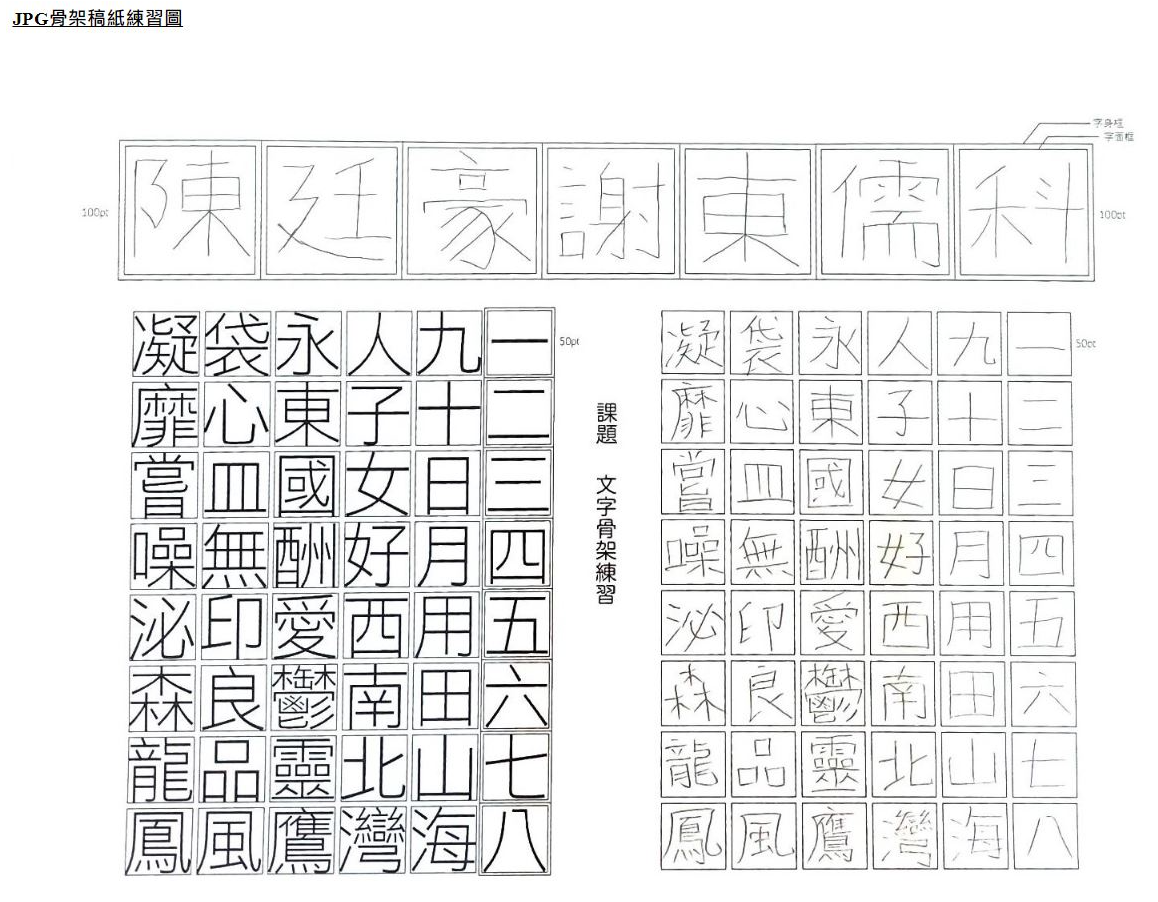 JPG骨架稿紙練習圖
字身框
字面框
100pt
陳廷豪謝東儒科
100pt
凝袋永人九一
靡心東子十二
嘗皿國女日三
噪無酬好月四
泌印愛西用五
森良鬱南田六
龍品靈北山七
鳳風鷹灣海八
50pt
課題 文字骨架練習
凝袋永人九一
靡心東子十二
嘗皿國女日三
噪無酬好月四
泌印愛西用五
森良鬱南田六
龍品靈北山七
鳳風鷹灣海八
50pt